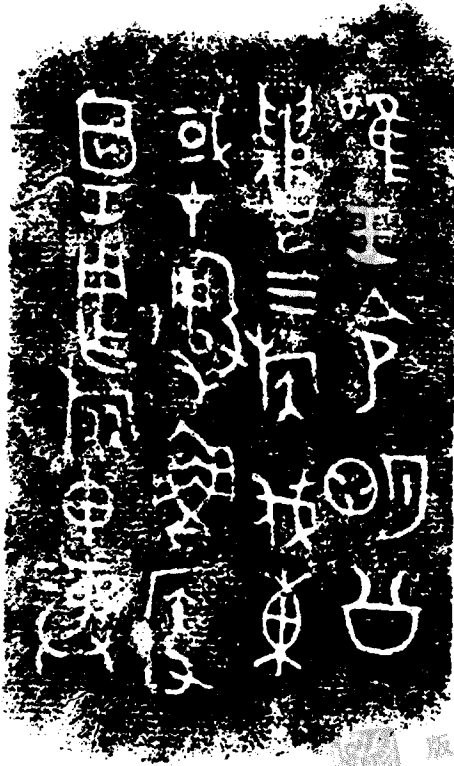 唯王令明公
遣三族伐東
或才魯侯又
工用乍旅彝
版